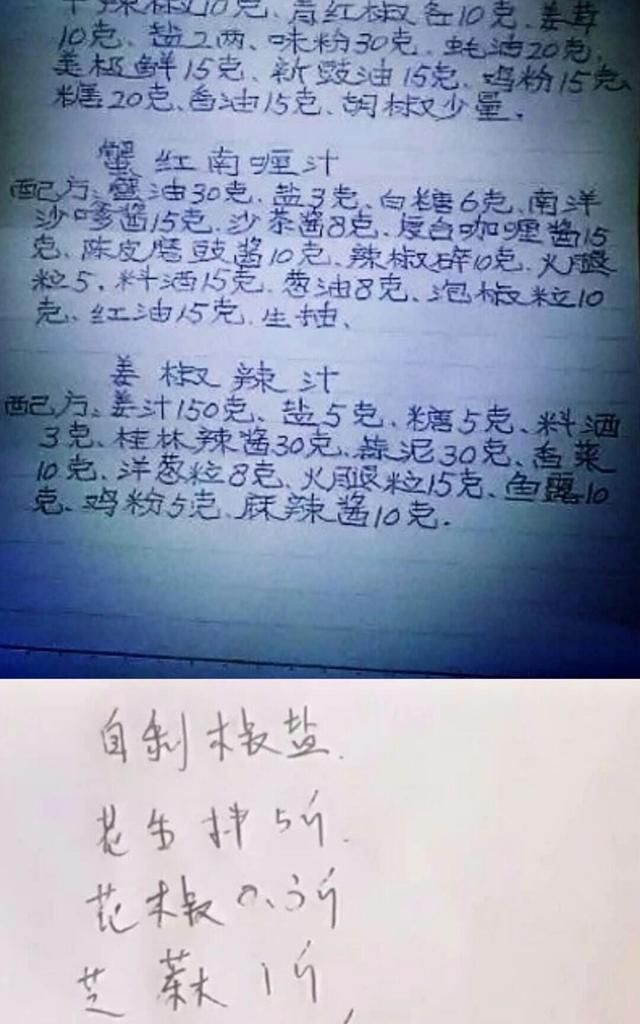 干辣椒10克、青红椒各10克、姜茸
10克、盐2两、味粉30克、蚝油20克、
美极鲜15克、新豉油15克、鸡粉15克、
糖20克、香油15克、胡椒少量.
蟹红南喱汁
配方:蟹油30克、盐3克、白糖6克、南洋
沙嗲酱15克、沙茶酱8克、咖喱酱15
克、陈皮磨豉酱10克、辣椒碎10克、火腿
粒5、料酒15克、葱油8克、泡椒粒10
克、红油15克、生抽、
姜椒辣汁
配方:姜汁150克、盐5克、糖5克、料酒
3克、桂林辣酱30克、蒜泥30克、香菜
10克、洋葱粒8克、火腿粒15克、鱼露10
克、鸡粉5克、麻辣酱10克.
自制椒盐.
花生拌5斤.
花椒0.3斤
芝麻1斤